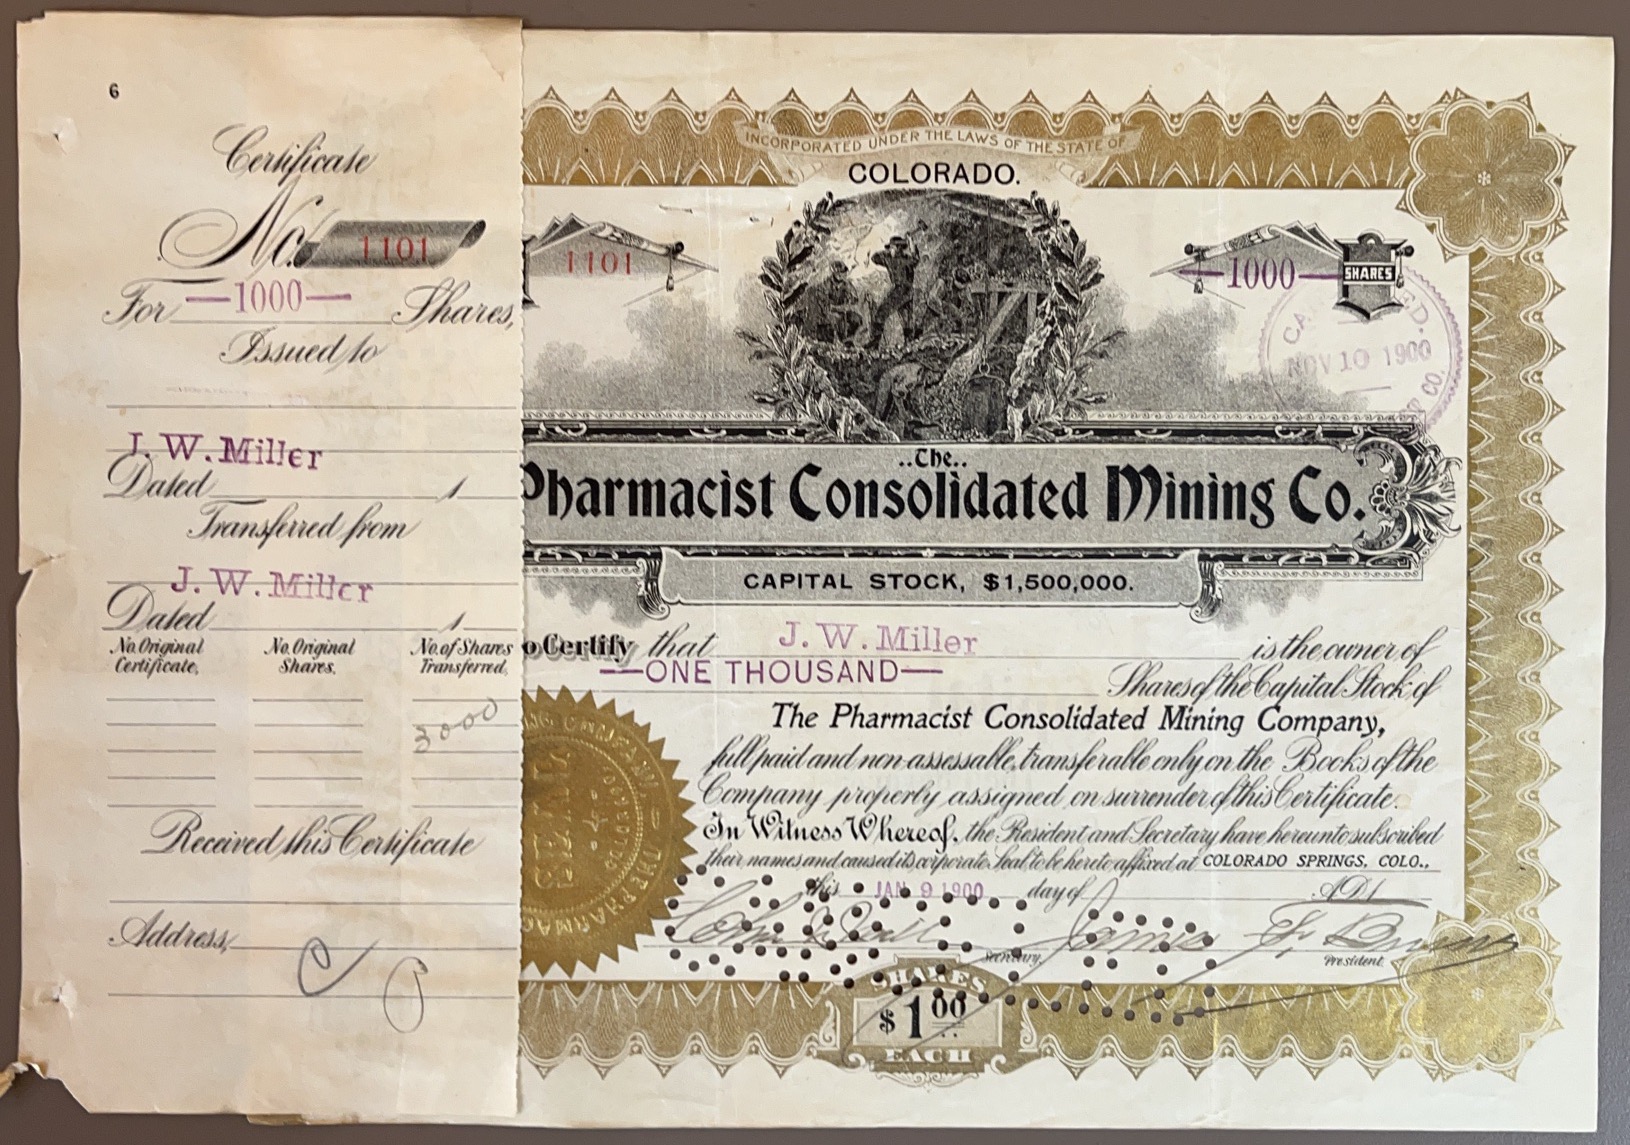 6
Certificate
No. 1101
For —1000— Shares,
Issued to
J. W. Miller
Dated 1
Transferred from
J. W. Miller
Dated 1
No. Original Certificate, No. Original Shares. No. of Shares Transferred,
3000
Received this Certificate
Address,
INCORPORATED UNDER THE LAWS OF THE STATE OF
COLORADO.
1101
—1000— SHARES
NOV 10 1900
CO.
..The..
Pharmacist Consolidated Mining Co.
CAPITAL STOCK, $1,500,000.
o Certify that J. W. Miller is the owner of
—ONE THOUSAND— Shares of the Capital Stock of
The Pharmacist Consolidated Mining Company,
full paid and non-assessable, transferable only on the Books of the
Company properly assigned on surrender of this Certificate.
In Witness Whereof, the President and Secretary have hereunto subscribed
their names and caused its corporate Seal to be hereto affixed at COLORADO SPRINGS, COLO.,
this JAN 9 1900 day of A.D. 1
James F. Burns
Secretary. President.
SEAL
SHARES
$1.00
EACH